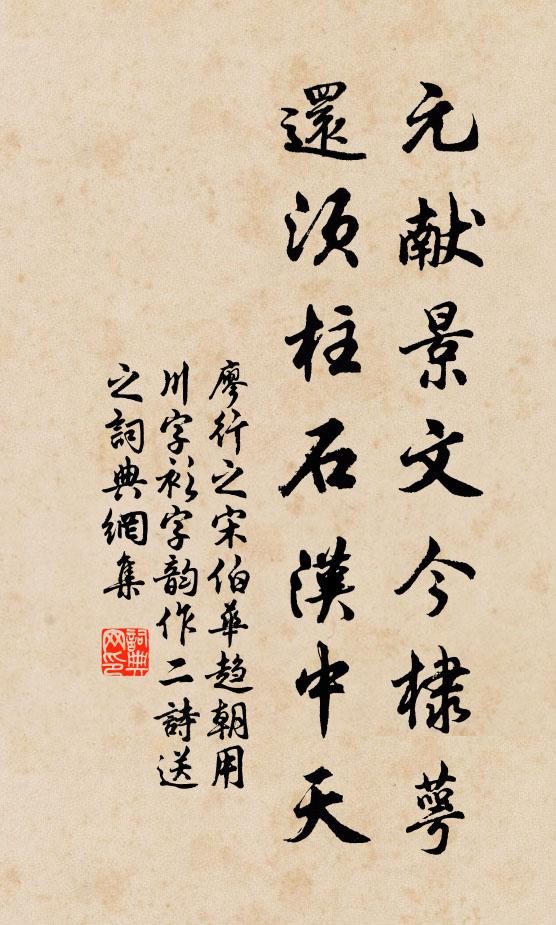 元献景文今棣萼
還須柱石漢中天
廖行之宋伯華趋朝用
川字衫字韵作二詩送
之詞典網集
詞典網印